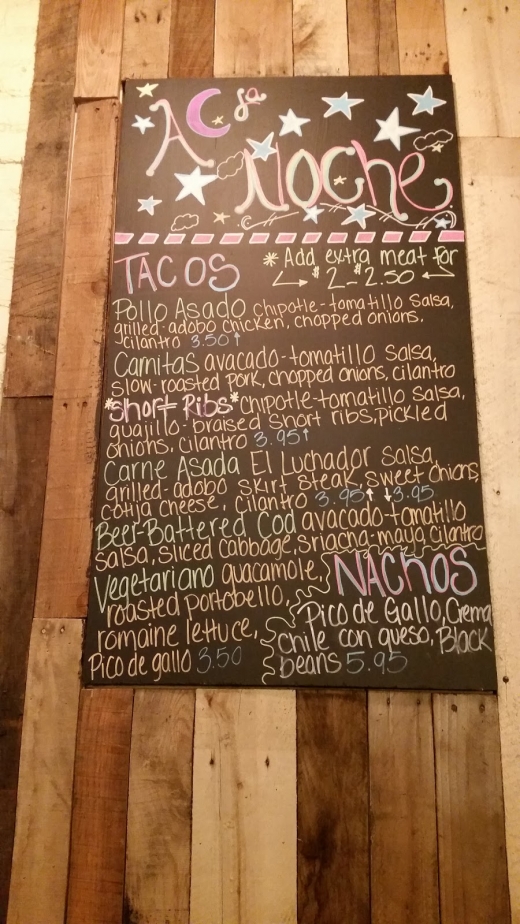 AC de
Noche
TACOS
* Add extra meat for
$2-$2.50
Pollo Asado chipotle-tomatillo Salsa,
grilled-adobo chicken, chopped onions,
cilantro 3.50↑
Carnitas avacado-tomatillo Salsa,
slow-roasted pork, chopped onions, cilantro
*Short Ribs* chipotle-tomatillo Salsa,
guajillo-braised Short ribs, pickled
onions, cilantro 3.95↑
Carne Asada El Luchador Salsa,
grilled-adobo skirt steak, sweet onions,
cotija cheese, cilantro 3.95↑ ↓3.95
Beer-Battered Cod avacado-tomatillo
salsa, sliced cabbage, sriacha-mayo, cilantro
Vegetariano guacamole,
roasted portobello,
romaine lettuce,
Pico de gallo 3.50
NACHOS
Pico de Gallo, Crema
chile con queso, Black
beans 5.95